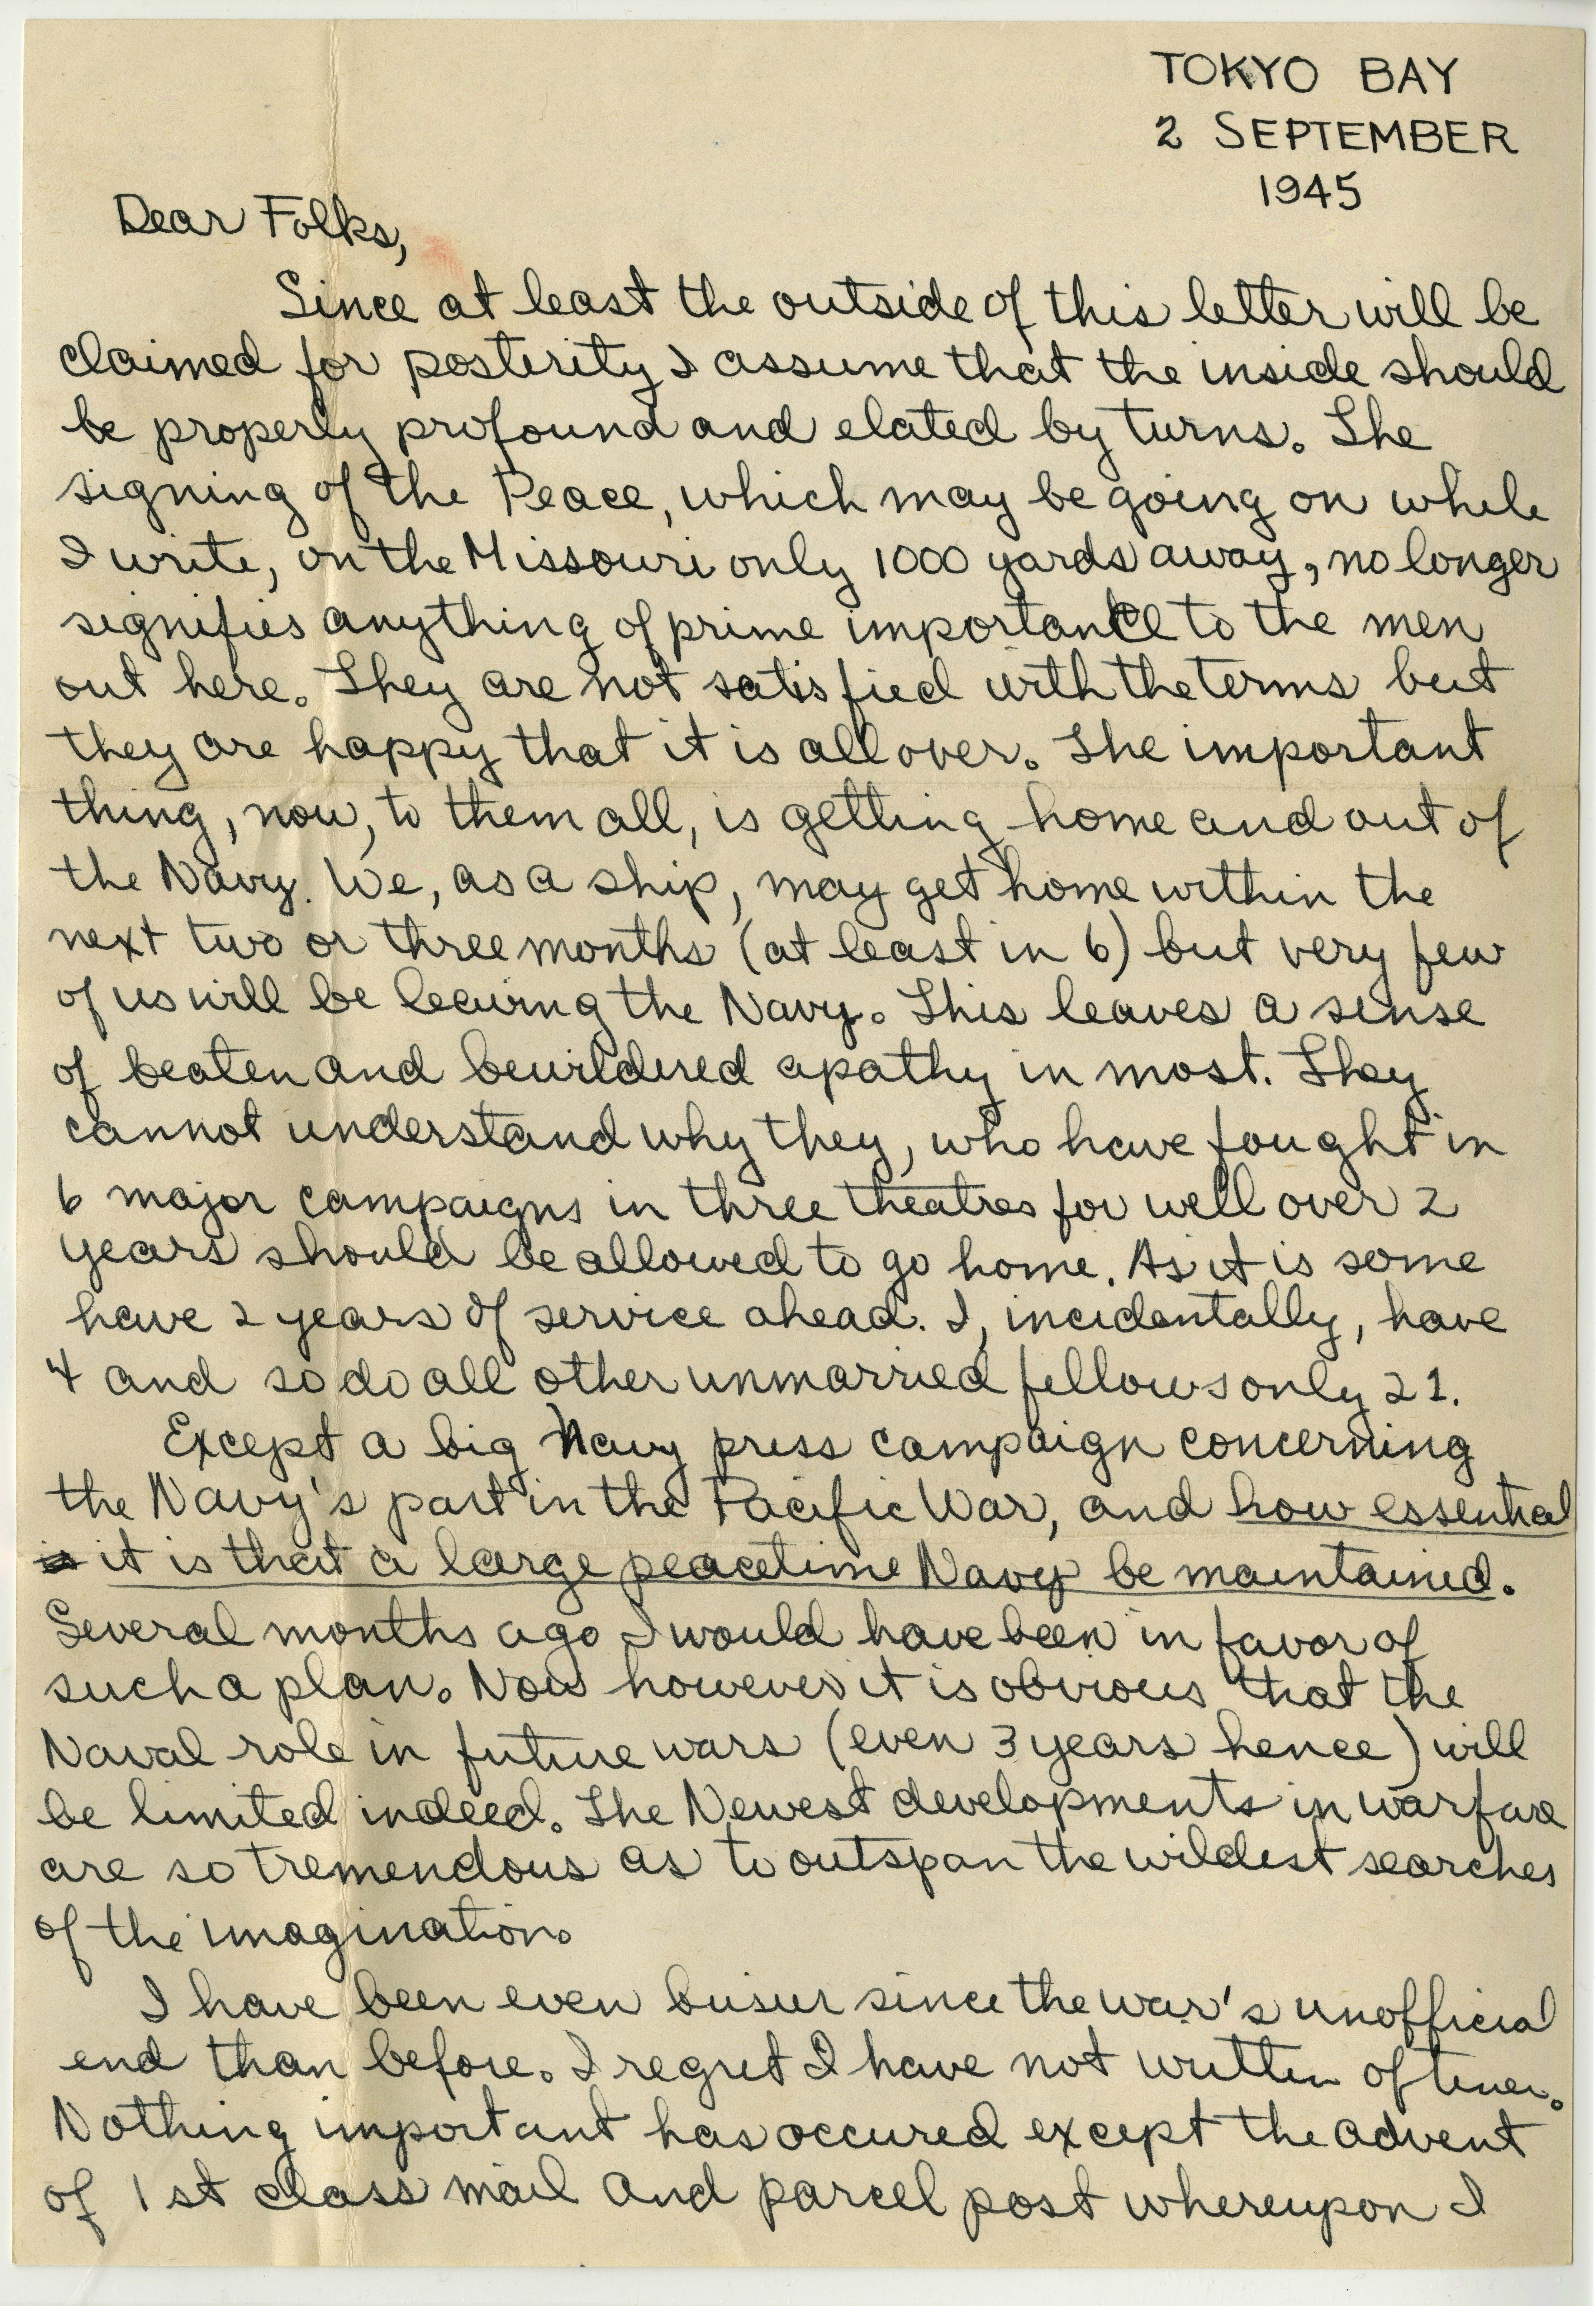 TOKYO BAY
2 SEPTEMBER
1945
Dear Folks,
Since at least the outside of this letter will be
claimed for posterity I assume that the inside should
be properly profound and elated by turns. The
signing of the Peace, which may be going on while
I write, on the Missouri only 1000 yards away, no longer
signifies anything of prime importance to the men
out here. They are not satisfied with the terms but
they are happy that it is all over. The important
thing, now, to them all, is getting home and out of
the Navy. We, as a ship, may get home within the
next two or three months (at least in 6) but very few
of us will be leaving the Navy. This leaves a sense
of beaten and bewildered apathy in most. They
cannot understand why they, who have fought in
6 major campaigns in three theatres for well over 2
years should be allowed to go home. As it is some
have 2 years of service ahead. I, incidentally, have
4 and so do all other unmarried fellows only 21.
Except a big Navy press campaign concerning
the Navy's part in the Pacific War, and how essential
is it is that a large peacetime Navy be maintained.
Several months ago I would have been in favor of
such a plan. Now however it is obvious that the
Naval role in future wars (even 3 years hence) will
be limited indeed. The Newest developments in warfare
are so tremendous as to outspan the wildest searches
of the imagination.
I have been even busier since the war's unofficial
end than before. I regret I have not written oftener.
Nothing important has occured except the advent
of 1st class mail and parcel post whereupon I